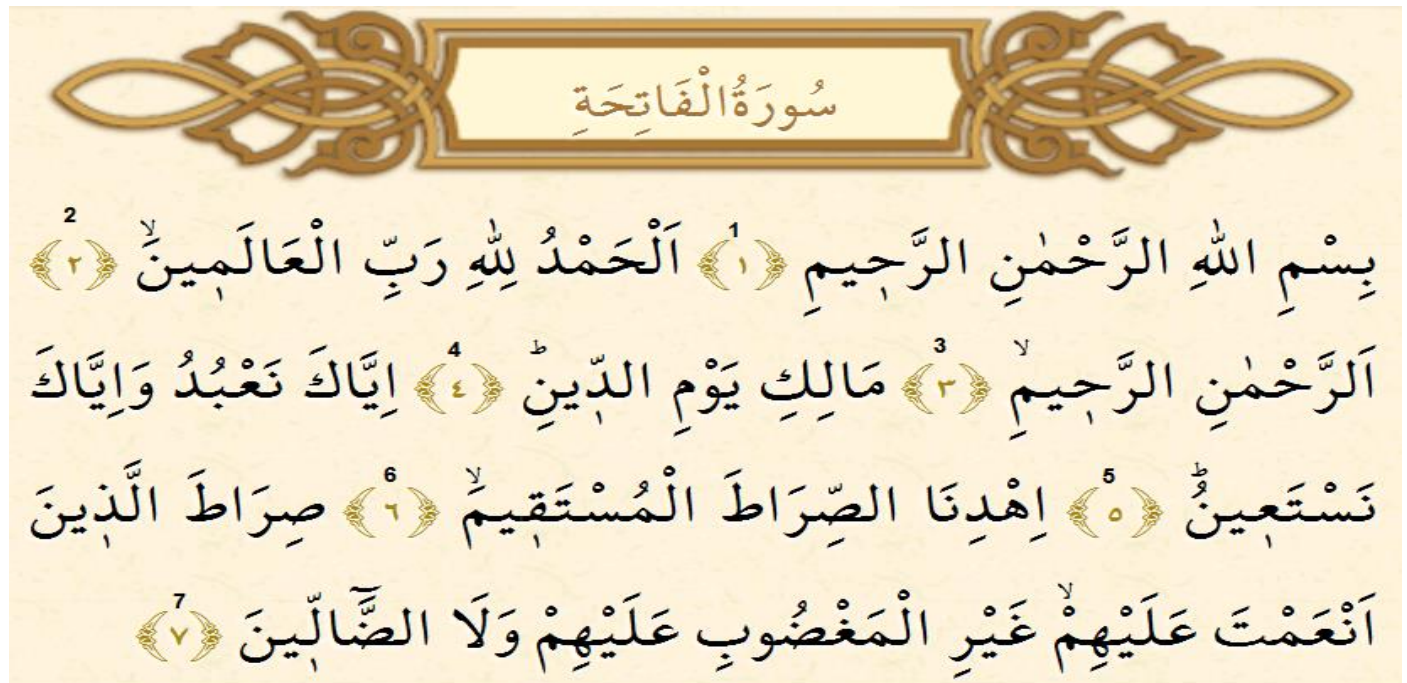 سُورَةُ الْفَاتِحَةِ
بِسْمِ اللهِ الرَّحْمٰنِ الرَّح۪يمِ ﴿١﴾ 1 اَلْحَمْدُ لِلّٰهِ رَبِّ الْعَالَم۪ينَۙ ﴿٢﴾ 2
اَلرَّحْمٰنِ الرَّح۪يمِۙ ﴿٣﴾ 3 مَالِكِ يَوْمِ الدّ۪ينِۜ ﴿٤﴾ 4 اِيَّاكَ نَعْبُدُ وَاِيَّاكَ
نَسْتَع۪ينُۜ ﴿٥﴾ 5 اِهْدِنَا الصِّرَاطَ الْمُسْتَق۪يمَۙ ﴿٦﴾ 6 صِرَاطَ الَّذ۪ينَ
اَنْعَمْتَ عَلَيْهِمْۙ غَيْرِ الْمَغْضُوبِ عَلَيْهِمْ وَلَا الضَّٓالّ۪ينَ ﴿٧﴾ 7